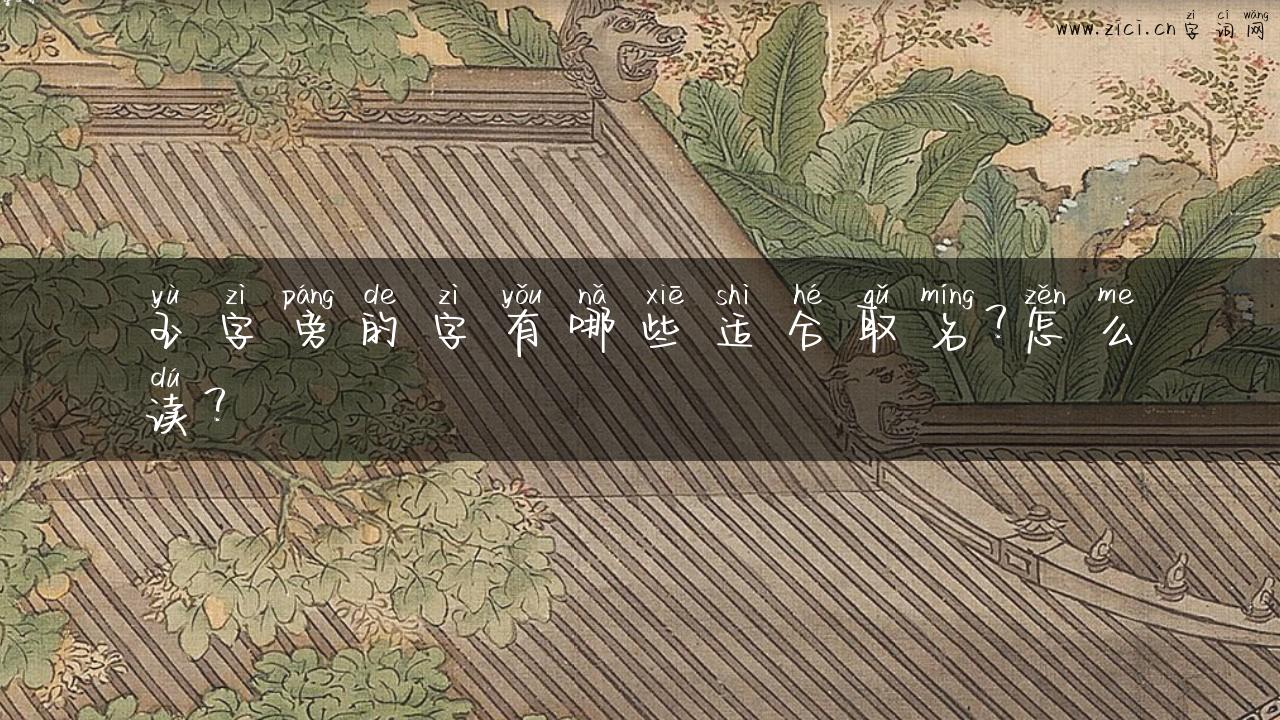 zì cí wǎng
www.zici.cn 字词网
yù zì páng de zì yǒu nǎ xiē shì hé qǔ míng zěn me
玉字旁的字有哪些适合取名？怎么
dú
读？